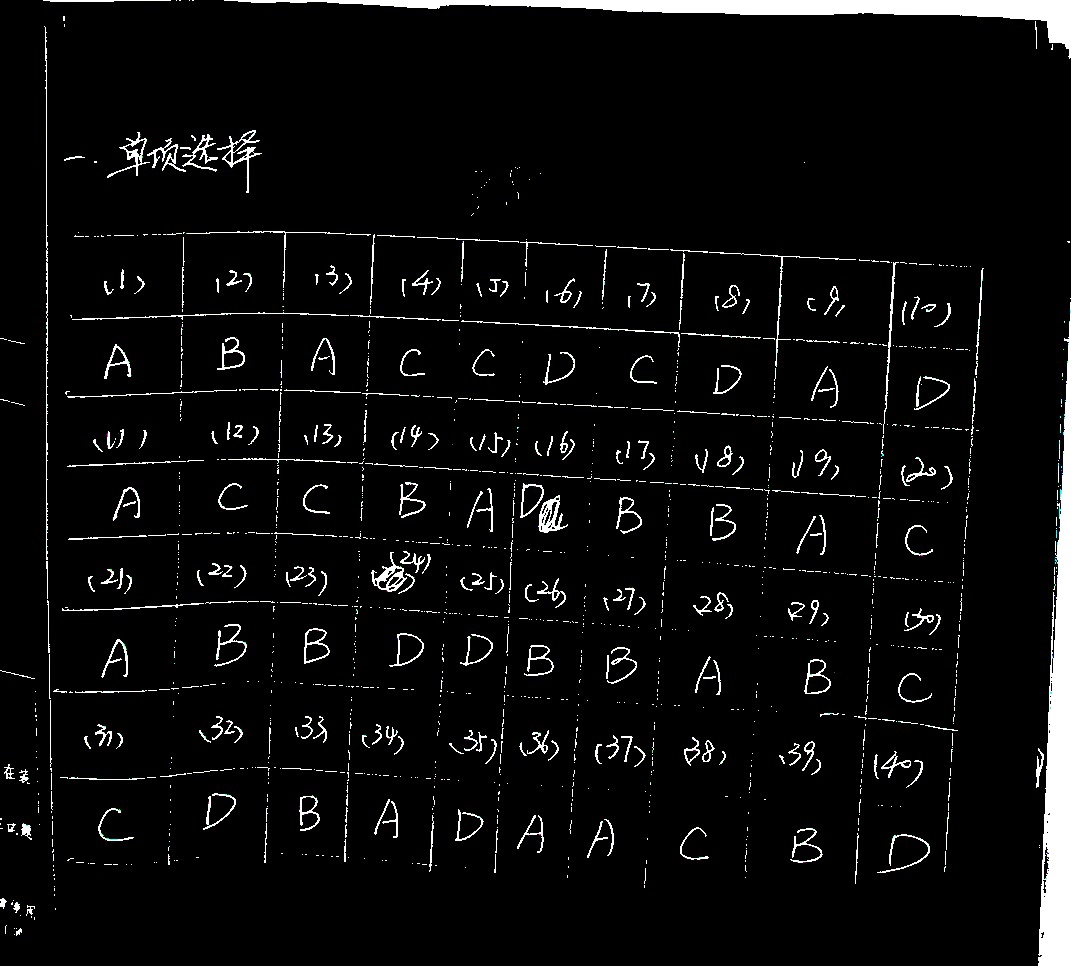 一.单项选择
(1) (2) (3) (4) (5) (6) (7) (8) (9) (10)
A B A C C D C D A D
(11) (12) (13) (14) (15) (16) (17) (18) (19) (20)
A C C B A D B B A C
(21) (22) (23) (24) (25) (26) (27) (28) (29) (30)
A B B D D B B A B C
(31) (32) (33) (34) (35) (36) (37) (38) (39) (40)
C D B A D A A C B D
在装